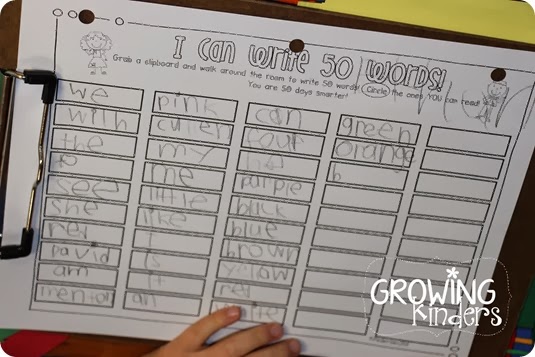 I can write 50 words!
Grab a clipboard and walk around the room to write 50 words! Circle the ones YOU can read!
You are 50 days smarter!
we
with
the
to
see
she
red
david
am
pink
cullen
my
me
little
like
I
is
it
an
can
purple
black
blue
brown
yellow
red
white
green
orange
b
GROWING
Kinders